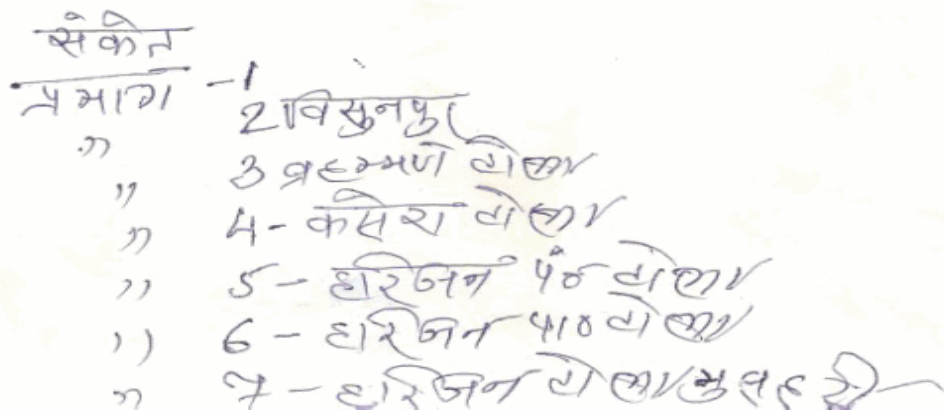 संकेत
प्रभाग -1
" 2 विसुनपुर
" 3 ब्रहम्मण टोला
" 4 - कसेरा टोला
" 5 - हरिजन पं० टोला
" 6 - हरिजन पा० टोला
" 7 - हरिजन टोला मुसहरी